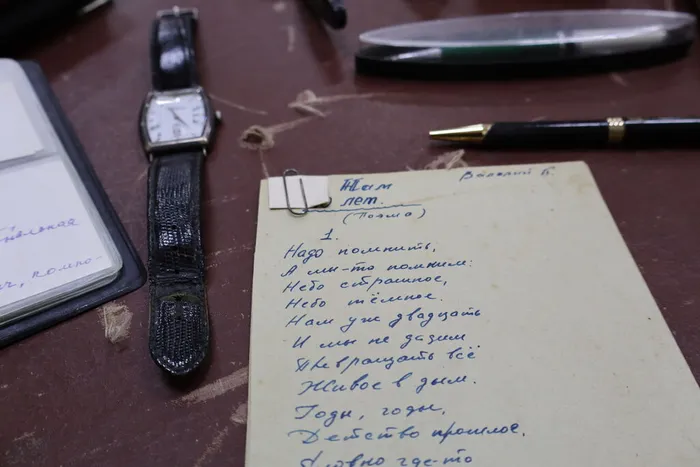 лет.
(Поэма)
1.
Надо помнить,
А мы-то помним:
Небо страшное,
Небо тёмное.
Нам уж двадцать
И мы не дадим
Превращать всё
Живое в дым.
Годы, годы,
Детство прошлое,
Словно где-то
компо-